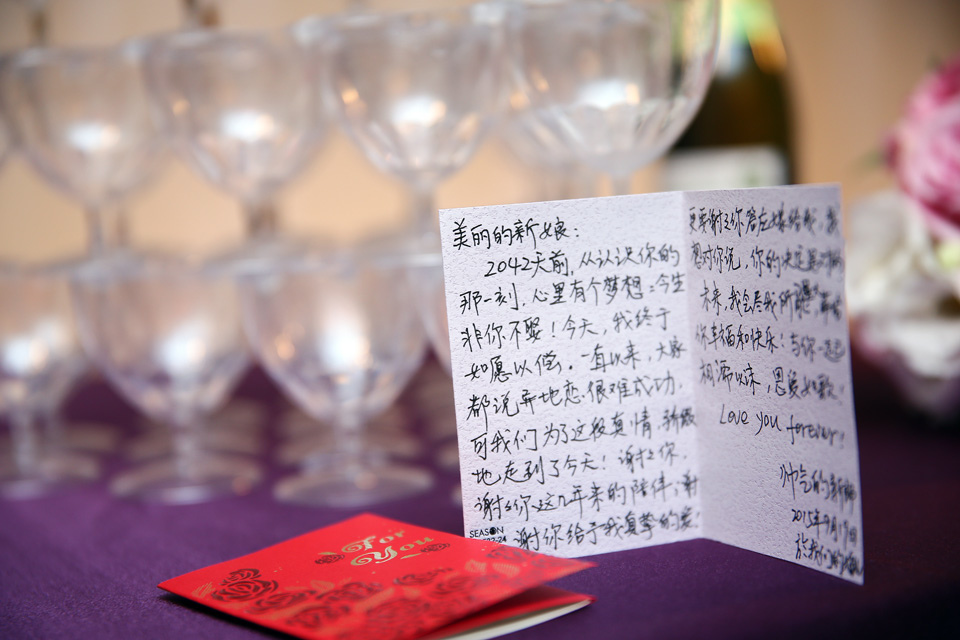 美丽的新娘：
2042天前，从认识你的
那一刻，心里有个梦想：今生
非你不娶！今天，我终于
如愿以偿。一直以来，大家
都说异地恋很难成功，
可我们为了这份真情，
地走到了今天！谢谢你，
谢谢你这几年来的陪伴，谢
谢你给于我真挚的爱！
SEASON
更要谢谢你答应嫁给我，我
想对你说，你的决定是
未来，我会尽我所
你幸福和快乐！与你一起
相濡以沫，恩爱如歌！
Love you forever!
帅气的新郎
2015年9月19日
For
You